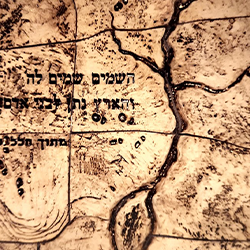 השמים שמים לה
והארץ נתן לבני אדם
מתוך הלל